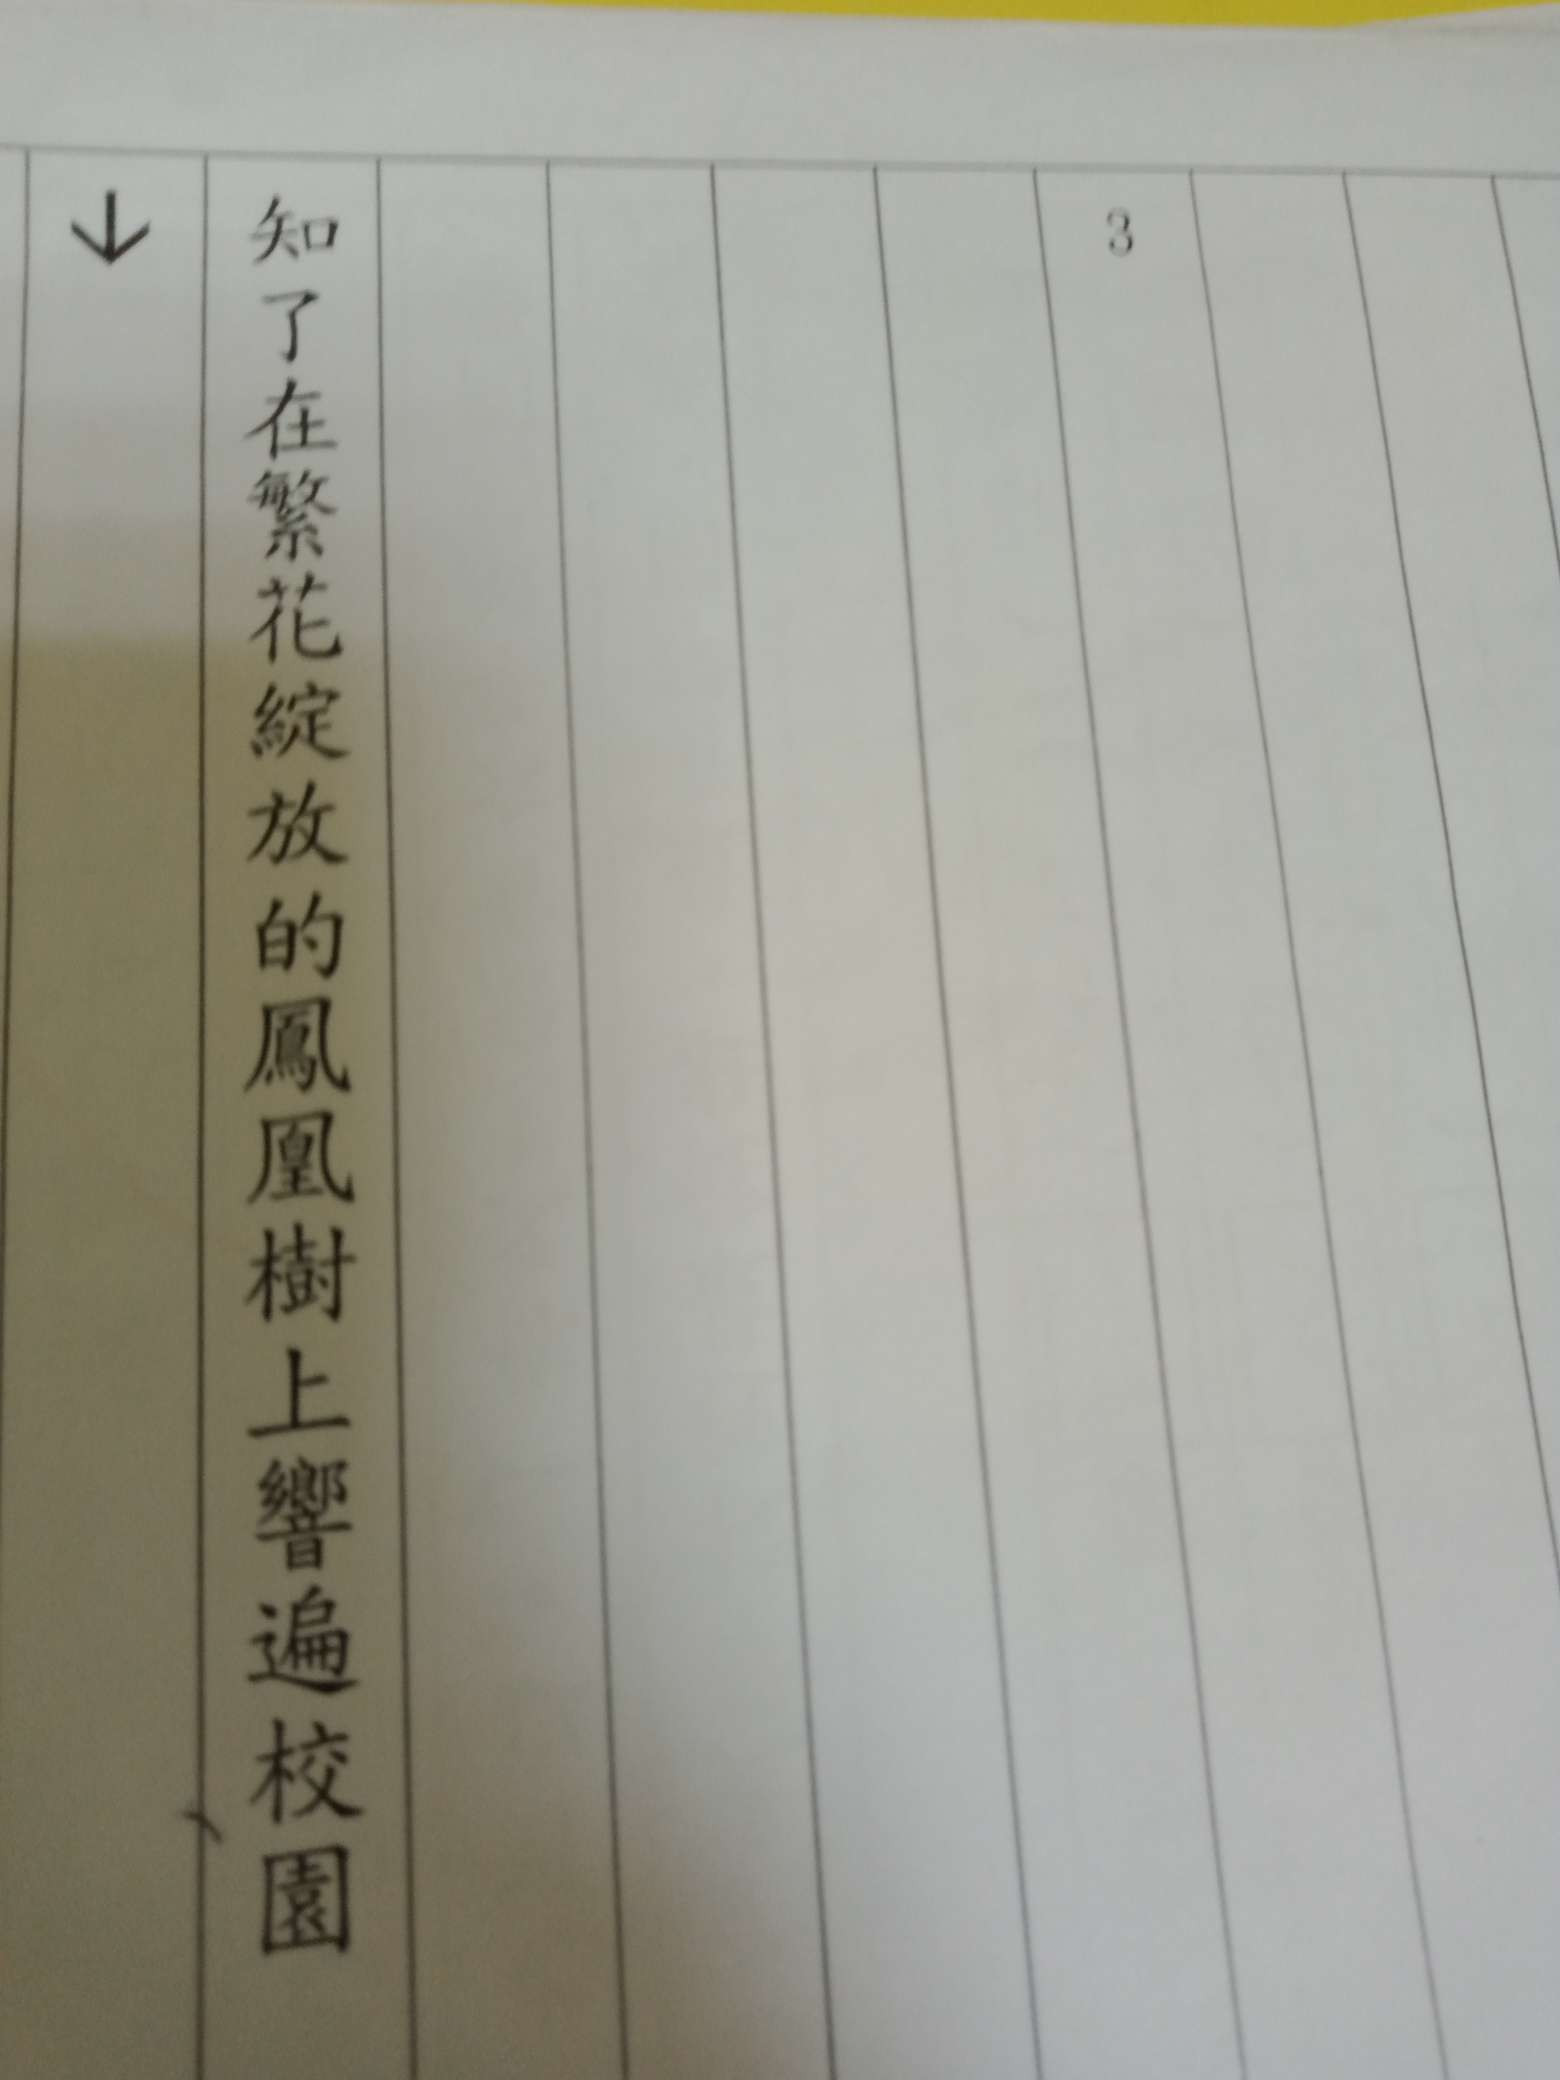 3
知了在繁花綻放的鳳凰樹上響遍校園
↓